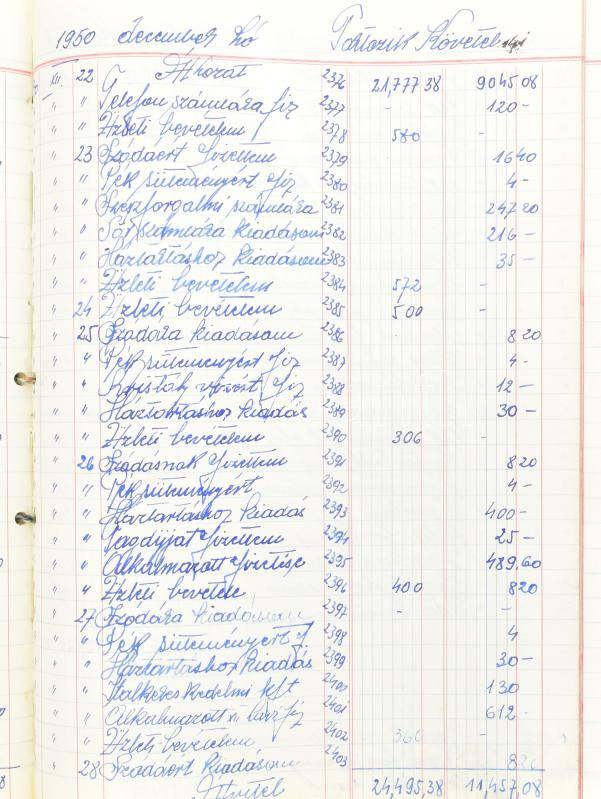 1950 december hó Tartozik Követel
XII. 22 Áthozat 2376 21,777 38 9045 08
" " Telefon számlára fiz 2377 - 120 -
" " Üzleti bevételem 2378 580 -
" 23 Szódáért fizettem 2379 16 40
" " Pék süteményért fiz 2380 4 -
" " Szeszforgalmi számlára 2381 247 20
" " Sör számlára kiadásom 2382 216 -
" " Háztartáshoz kiadásom 2383 35 -
" " Üzleti bevételem 2384 572 -
" 24 Üzleti bevételem 2385 500 -
" 25 Szódára kiadásom 2386 8 20
" " Pék süteményért fiz 2387 4 -
" " fiz 2388 12 -
" " Háztartáshoz kiadás 2389 30 -
" " Üzleti bevételem 2390 306 -
" 26 Szódásnak fizettem 2391 8 20
" " Pék süteményért 2392 4 -
" " Háztartáshoz kiadás 2393 400 -
" " Tagdíjat fizettem 2394 25 -
" " Alkalmazott fizetése 2395 489.60
" " Üzleti bevétele 2396 400 8 20
" 27 Szódára kiadásom 2397 - -
" " Pék süteményért f 2398 4
" " Háztartáshoz kiadás 2399 30 -
" " Italkereskedelmi kft 2400 130
" " Alkalmazott fiz 2401 612 -
" " Üzleti bevételem 2402 360 -
" 28 Szódáért kiadásom 2403 8 20
Átvitel 24,495,38 11,457,08